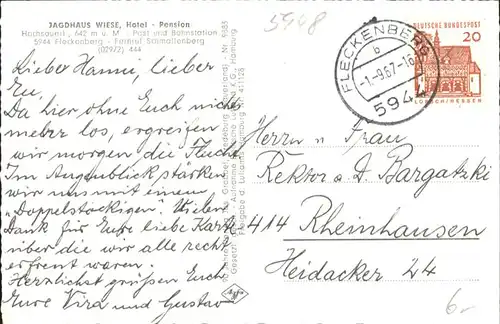 5948
JAGDHAUS WIESE, Hotel - Pension
Hochsauerl., 642 m ü. M - Post und Bahnstation
5944 Fleckenberg - Fernruf Schmallenberg
(02972) 444
Lieber Hanni, lieber
Eu,
Da hier ohne Euch nichts
mehr los, ergreifen
wir morgen die Flucht
Im Augenblick stärken
wir uns mit einem
„Doppelstöckigen". Vielen
Dank für Eure liebe Karte
über die wir alle recht
erfreut waren.
Herzlichst grüßen Euch
Eure Vira und Gustav
FLECKENBERG
b
-1.-9.67-16
594
DEUTSCHE BUNDESPOST
20
LORSCH/HESSEN
Herrn u. Frau
Rektor a. D. Bargatzki
414 Rheinhausen
Heidacker 24
6.-
Agfa